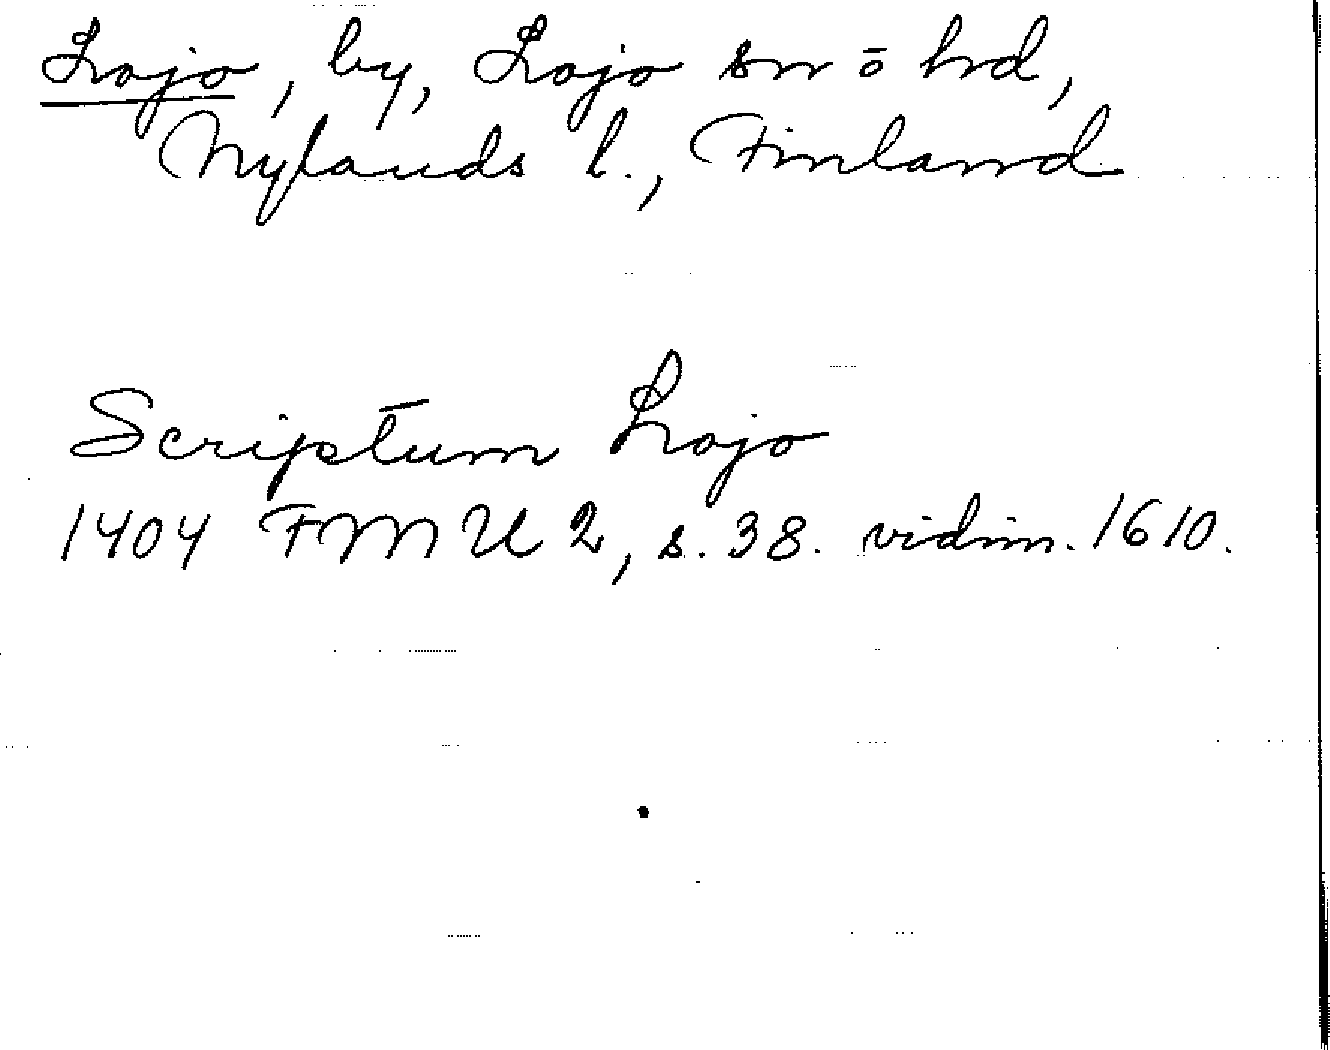 Lojo, by, Lojo sn ō hd,
Nylands l., Finland
Scriptum Lojo
1404 FMU 2, s. 38. vidim. 1610.